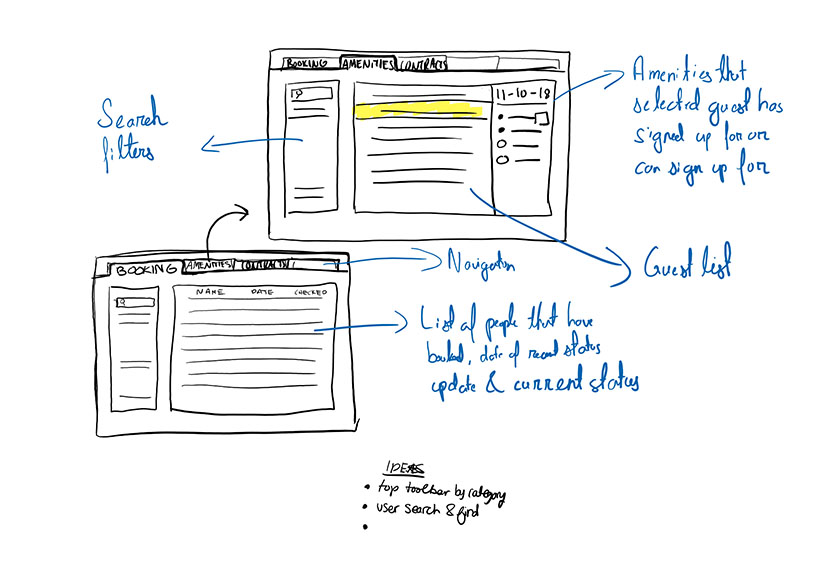 BOOKING AMENITIES CONTRACTS
11-10-18
Amenities that
selected guest has
signed up for or
can sign up for
Search
filters
Guest list
BOOKING AMENITIES CONTRACTS
Navigation
NAME DATE CHECKED
List of people that have
booked, date of recent status
update & current status
IDEAS
• top toolbar by category
• user search & find
•